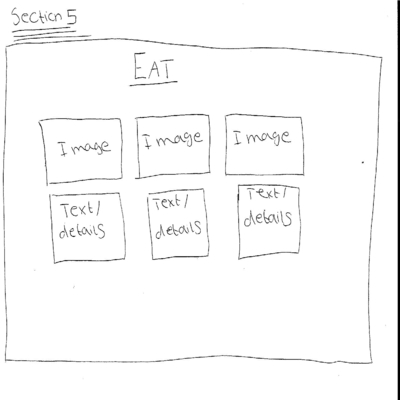 Section 5
EAT
Image
Image
Image
Text/
details
Text/
details
Text/
details